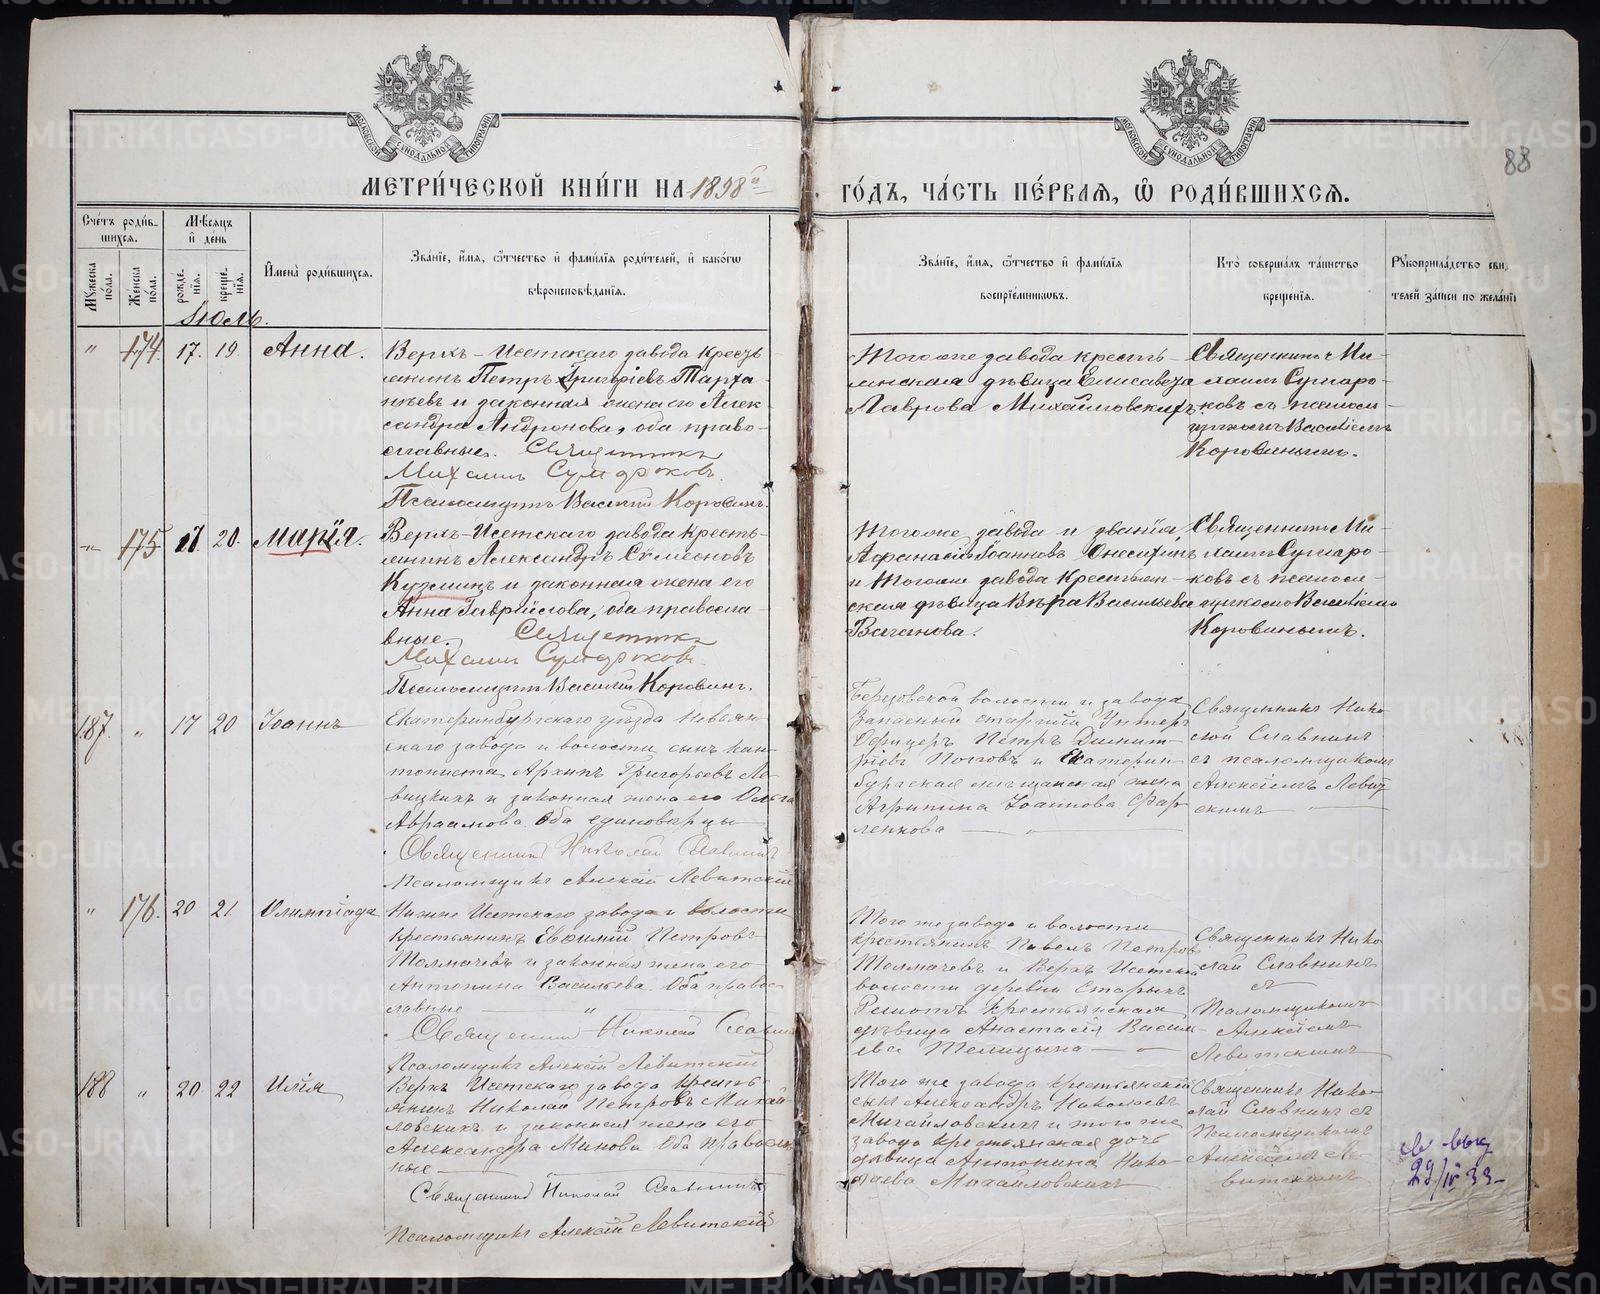 88
МОСКОВСКОЙ СУНОДАЛЬНОЙ ТИПОГРАФІИ
МОСКОВСКОЙ СУНОДАЛЬНОЙ ТИПОГРАФІИ
МЕТРИ́ЧЕСКОЙ КНИ́ГИ НА 1898й
ГО́ДЪ, ЧА́СТЬ ПЕ́РВАѦ, Ѡ РОДИ́ВШИХСѦ.
Сче́тъ роди́в-
шихсѧ.
Мꙋжеска по́ла.
Же́нска по́ла.
Мѣ́сѧцъ
и҆ де́нь
рожде́-
нїѧ.
креще́-
нїѧ.
И҆мена̀ роди́вшихсѧ.
Зва́нїе, и҆́мѧ, ѻ҆́тчество и҆ фами́лїѧ роди́телей, и҆ како́гѡ
вѣроисповѣ́данїѧ.
Зва́нїе, и҆́мѧ, ѻ҆́тчество и҆ фами́лїѧ
воспрїе́мникѡвъ.
Кто̀ соверша́лъ та́инство
креще́нїѧ.
Рꙋкоприкла́дство сви́дѣ
телей за́писи по жела́нїю
Іюль.
" 174. 17. 19. Анна.
Верхъ-Исетскаго завода кресть
янинъ Петръ Григорiевъ Тарха
нѣевъ и законная жена его Алек
сандра Андронова, оба право-
славные. Священникъ
Михаилъ Сумароковъ.
Псаломщикъ Василiй Коровинъ.
Тогоже завода крестъ-
янская дѣвица Елисавета
Лаврова Михайловскихъ.
Священникъ Ми-
хаилъ Сумаро-
ковъ съ псалом-
щикомъ Василiемъ
Коровинымъ.
" 175 17. 20. Марiя.
Верхъ-Исетскаго завода кресть-
янинъ Александръ Симеоновъ
Кузминъ и законная жена его
Анна Гаврiилова, оба правосла-
вные. Священникъ
Михаилъ Сумароковъ.
Псаломщикъ Василiй Коровинъ.
Тогоже завода и званiя,
Афанасiй Iоанновъ
и Тогоже завода Крестьян-
ская дѣвица Вѣра Васильева
Ваганова.
Священникъ Ми-
хаилъ Сумаро-
ковъ съ псалом-
щикомъ Василiемъ
Коровинымъ.
187. " 17 20 Iоаннъ
Екатеринбургскаго уѣзда Невьян-
скаго завода и волости, сынъ кан-
тониста Архипъ Григорьевъ Ле-
вицкихъ и законная жена его Ольга
Авраамова. Оба единовѣрцы
Священникъ Николай Славнинъ
Псаломщикъ Алексiй Левитскiй
Березовской волости и завода
Запасный старшiй Унтеръ
Офицеръ Петръ Димит-
рiевъ Поповъ и Екатерин
бургская мѣщанская жена
Агрипина Iоаннова Фар-
ленкова — " —
Священникъ Нико
лай Славнинъ
съ псаломщикомъ
Алексiемъ Левит
скимъ —
" 176. 20 21 Олимпiада
Нижне Исетскаго завода и волости
крестьянинъ Евфимiй Петровъ
Толмачевъ и законная жена его
Антонина Васильева. Оба право-
славные — " —
Священникъ Николай Славнинъ
Псаломщикъ Алексiй Левитскiй
Того же завода и волости
крестьянинъ Павелъ Петровъ
Толмачевъ и Верхъ Исетской
волости деревни Старыхъ
Решотъ крестьянская
дѣвица Анастасiя Васи-
ева Телицына — " —
Священникъ Нико
лай Славнинъ
съ
Псаломщикомъ
Алексiемъ
Левитскимъ
188 " 20 22 Илiя
Верхъ Исетскаго завода кресть-
янинъ Николай Петровъ Михай
ловскихъ и законная жена его
Александра Минова. Оба православ
ные —
Священникъ Николай Славнинъ
Псаломщикъ Алексiй Левитскiй
Того же завода крестьянскiй
сынъ Александръ Николаевъ
Михайловскихъ и того же
завода крестьянская дочь
дѣвица Антонина Нико-
лаева Михайловскихъ
Священникъ Нико-
лай Славнинъ съ
Псаломщикомъ
Алексiемъ Ле-
витскимъ
св. выд
29/IV 33
METRIKI.GASO-URAL.RU